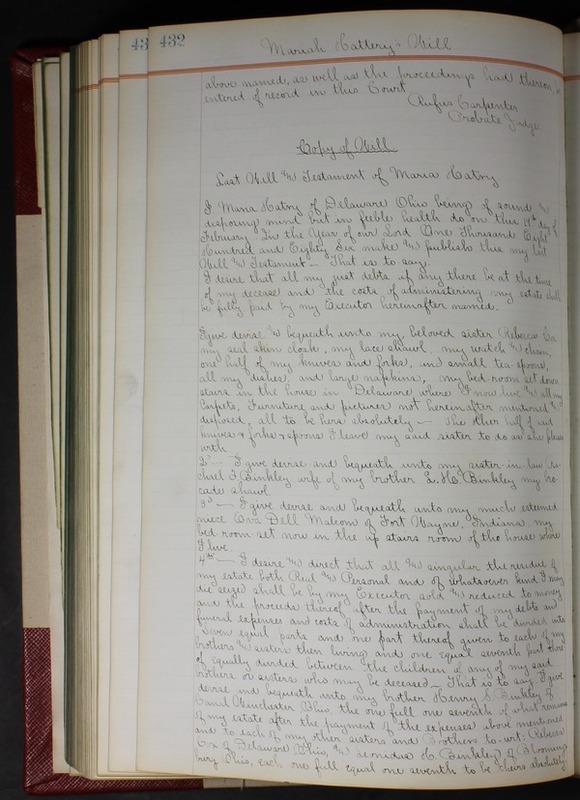 43 432 Mariah Hattery's Will
above named, as well as the proceedings had thereon,
entered of record in this Court
Rufus Carpenter
Probate Judge
Copy of Will
Last Will and Testament of Maria Hatery
I Maria Hatery of Delaware Ohio being of sound and
disposing mind but in feeble health do on this day of
February In the Year of our Lord One Thousand Eight
Hundred and Eighty Six make and publish this my last
Will and Testament – That is to say.
I desire that all my just debts if any there be at the time
of my decease and the costs of administering my estate shall
be fully paid by my Executor hereinafter named.
I give devise & bequeath unto my beloved sister Rebecca
my seal skin cloak, my lace shawl, my watch and chain,
one half of my knives and forks, and small tea-spoons,
all my dishes, and large napkins, my bed-room set down
stairs in the house in Delaware where I now live and all my
Carpets, Furniture and pictures not hereinafter mentioned &
disposed, all to be hers absolutely – The other half of said
knives & forks & spoons I leave my said sister to do as she pleases
with
2d — I give devise and bequeath unto my sister-in-law
Binkley wife of my brother L. H. Binkley my bro-
cade shawl.
3d — I give devise and bequeath unto my much esteemed
niece Eva Dell Malcom of Fort Wayne, Indiana, my
bed room set now in the up stairs room of the house where
I live.
4th — I desire and direct that all and singular the residue of
my estate both Real and Personal and of whatsoever kind I may
die seized shall be by my Executor sold and reduced to money
and the proceeds thereof after the payment of my debts and
funeral expenses and costs of administration shall be divided into
Seven equal parts and one part thereof given to each of my
brothers and sisters then living and one equal seventh part there
of equally divided between the children of any of my said
brothers or sisters who may be deceased – That is to say I give
devise and bequeath unto my brother Henry Binkley of
Canal Winchester Ohio, the one full one seventh of what remains
of my estate after the payment of the expenses above mentioned
and to each of my other sisters and Brothers to-wit: Rebecca
of Delaware Ohio, and Leonidus H. Binkley of Blooming
burg Ohio, each one full equal one seventh to be theirs absolutely.